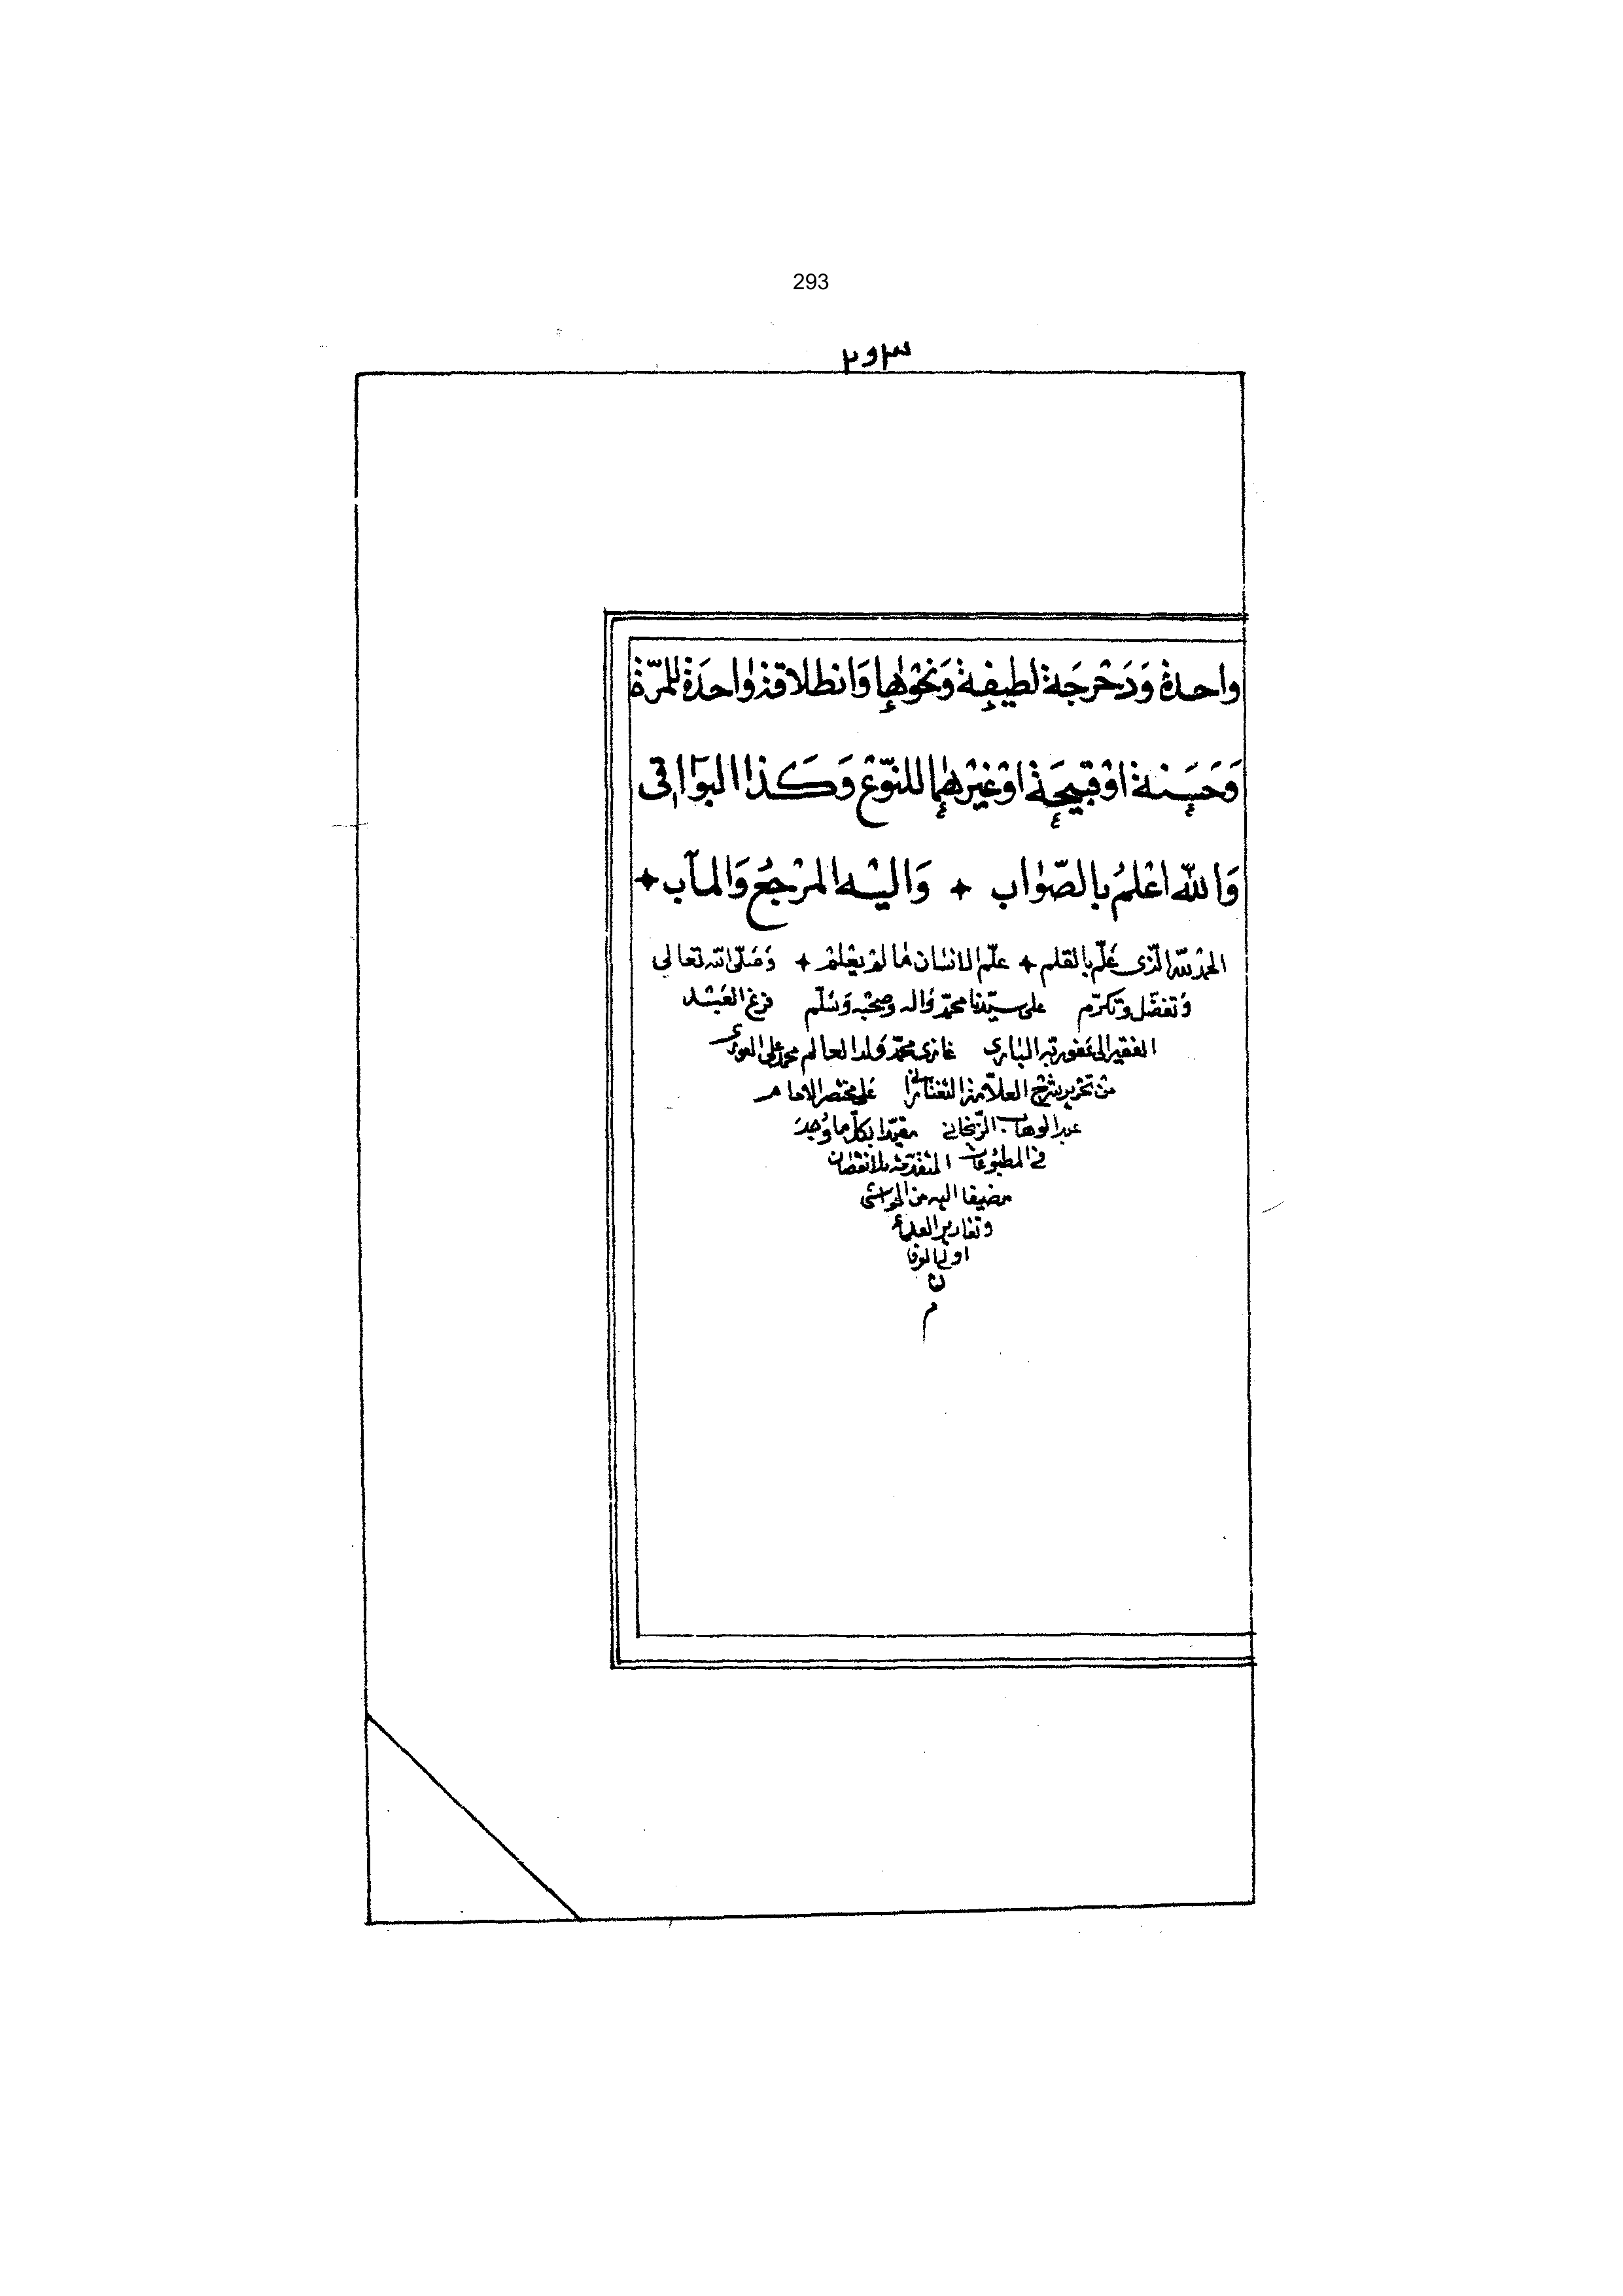 293
٢٩٣
واحدة وَدَحْرجَة لطيفة وَنحْوها وَانطلاقة واحدَة للمرّة
وَحَسَنة اوْ قبيحَة اوْ غيْرهما للنّوْع وَكَذا البوَاقى
وَالله اعْلمُ بالصّواب ✦ وَاليْه المرْجعُ وَالمآب ✦
الحمدُ للّٰه الّذى عَلّم بالقلم ✦ علّم الانسان مَا لمْ يعْلمْ ✦ وَصَلّى الله تعالى
وَتفضّل وتكرّم على سيّدنا محمّد وَاله وصحْبه وَسَلّم فرغ العَبْد
الفقير الى عَفو ربّه البَارى غازى محمّد وَلد العالم محمد على
منْ تحْرير شرْح العلاّمة التفتازانى عَلى مختصر الامام
عبد الوهاب الزّنجانى مقيّدا بكلّ ما وُجدَ
فى المطبُوعَات المتقدّمة بلا نقصَان
مضيفا اليه من الحواشى
وتقارير العلماء
ن
م